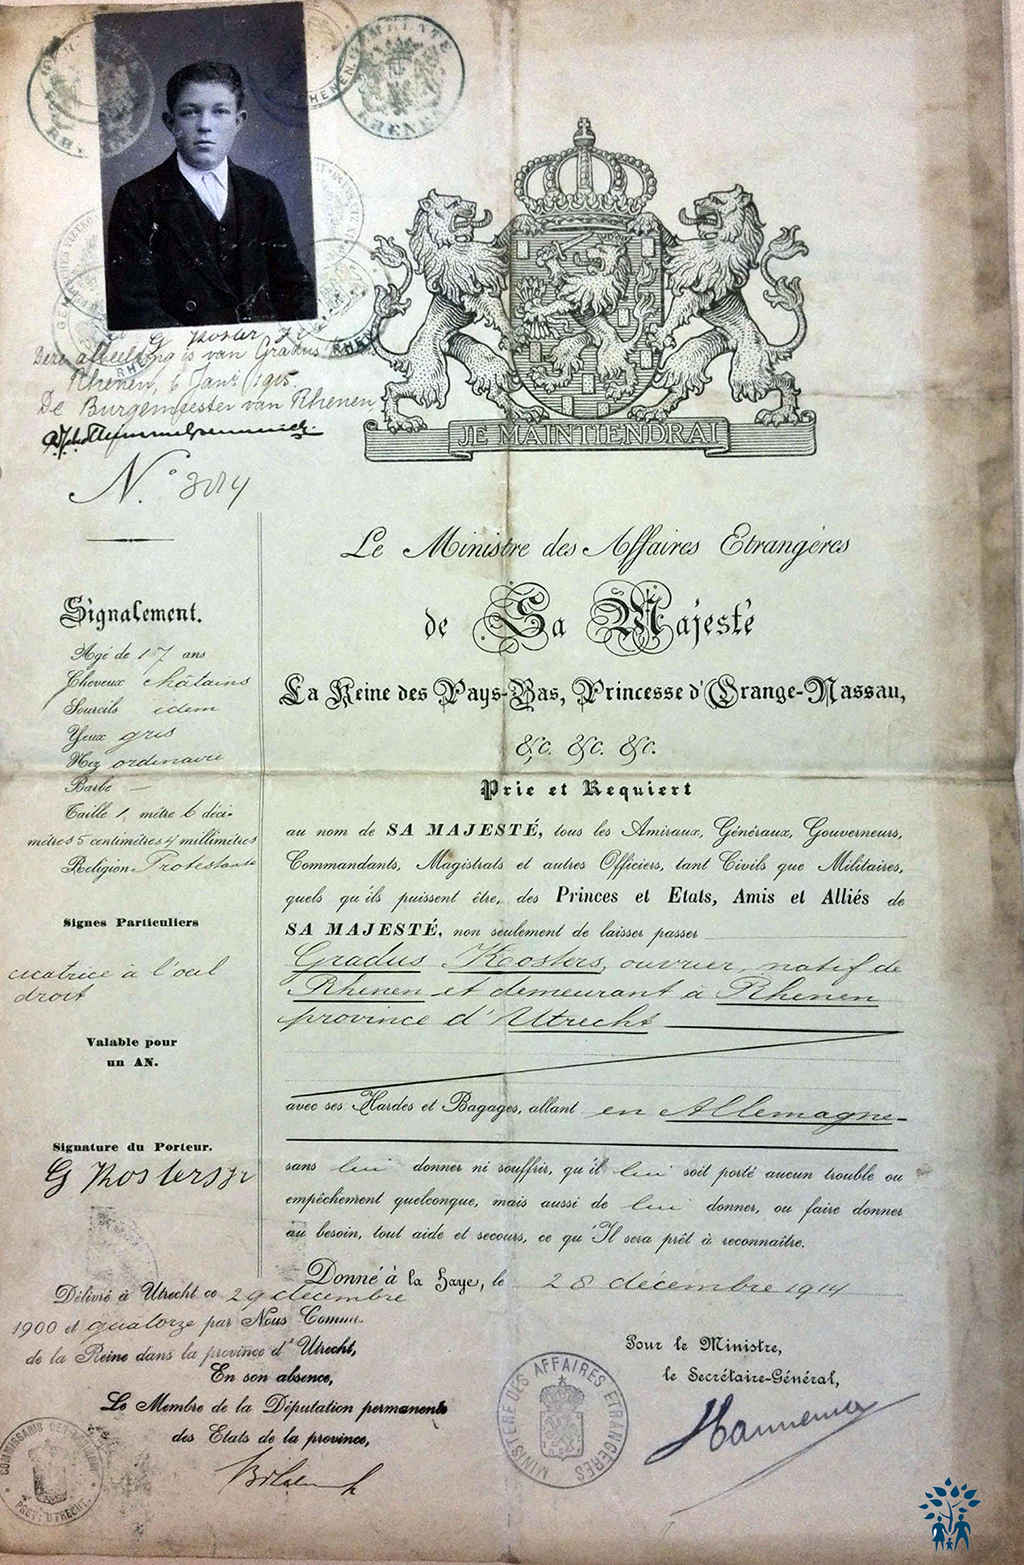 GEMEENTE
RHENEN
RHENEN
G Kosters Jr
Deze afbeelding is van Gradus
Rhenen, 6 Jan: 1915.
De Burgemeester van Rhenen,
JE MAINTIENDRAI
N.°
Le Ministre des Affaires Etrangères
de Sa Majesté
La Reine des Pays-Bas, Princesse d'Orange-Nassau,
&c. &c. &c.
Prie et Requiert
au nom de SA MAJESTÉ, tous les Amiraux, Généraux, Gouverneurs,
Commandants, Magistrats et autres Officiers, tant Civils que Militaires,
quels qu'ils puissent être, des Princes et Etats, Amis et Alliés de
SA MAJESTÉ, non seulement de laisser passer
Gradus Kosters, ouvrier, natif de
Rhenen et demeurant à Rhenen
province d'Utrecht
avec ses Hardes et Bagages, allant en Allemagne
sans lui donner ni souffrir, qu'il lui soit porté aucun trouble ou
empêchement quelconque, mais aussi de lui donner, ou faire donner
au besoin, tout aide et secours, ce qu'Il sera prêt à reconnaître.
Donné à la Haye, le 28 décembre 1914
Pour le Ministre,
le Secrétaire-Général,
Hannema
MINISTÈRE DES AFFAIRES ETRANGÈRES
Signalement.
Agé de 17 ans
Cheveux châtains
Sourcils idem
Yeux gris
Nez ordinaire
Barbe —
Taille 1, mètre 6 déci-
mètres 5 centimètres 4 millimètres
Religion Protestante
Signes Particuliers
cicatrice à l'œil
droit
Valable pour
un AN.
Signature du Porteur.
G Kosters Jr
Délivré à Utrecht ce 29 décembre
1900 et quatorze par Nous Comm.
de la Reine dans la province d'Utrecht,
En son absence,
Le Membre de la Députation permanente
des Etats de la province,